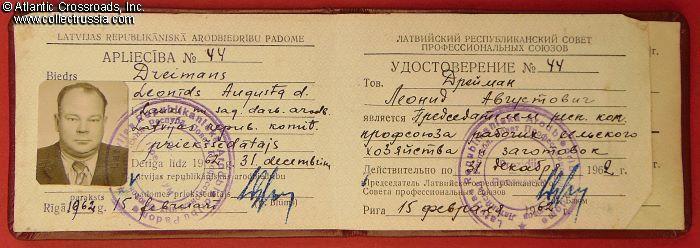 © Atlantic Crossroads, Inc.
www.collectrussia.com
LATVIJAS REPUBLIKĀNISKĀ ARODBIEDRĪBU PADOME
APLIECĪBA № 44
Biedrs Dreimans
Leonīds Augusta d.
Latvijas repub. komit.
priekšsēdētājs
Derīga līdz 1962. g. 31. decembrim
Latvijas republikāniskās arodbiedrību
padomes priekšsēdētājs
(K. Blūms)
paraksts
Rīgā 1962. g. 15 februārī
ЛАТВИЙСКИЙ РЕСПУБЛИКАНСКИЙ СОВЕТ
ПРОФЕССИОНАЛЬНЫХ СОЮЗОВ
УДОСТОВЕРЕНИЕ № 44
Тов. Дрейман
Леонид Августович
является Председателем респ. ком.
профсоюза рабочих сельского
хозяйства и заготовок
Действительно по декабря 1962
Председатель Латвийского республиканского
Совета профессиональных союзов
Блюм
Рига 15 февраля 1962